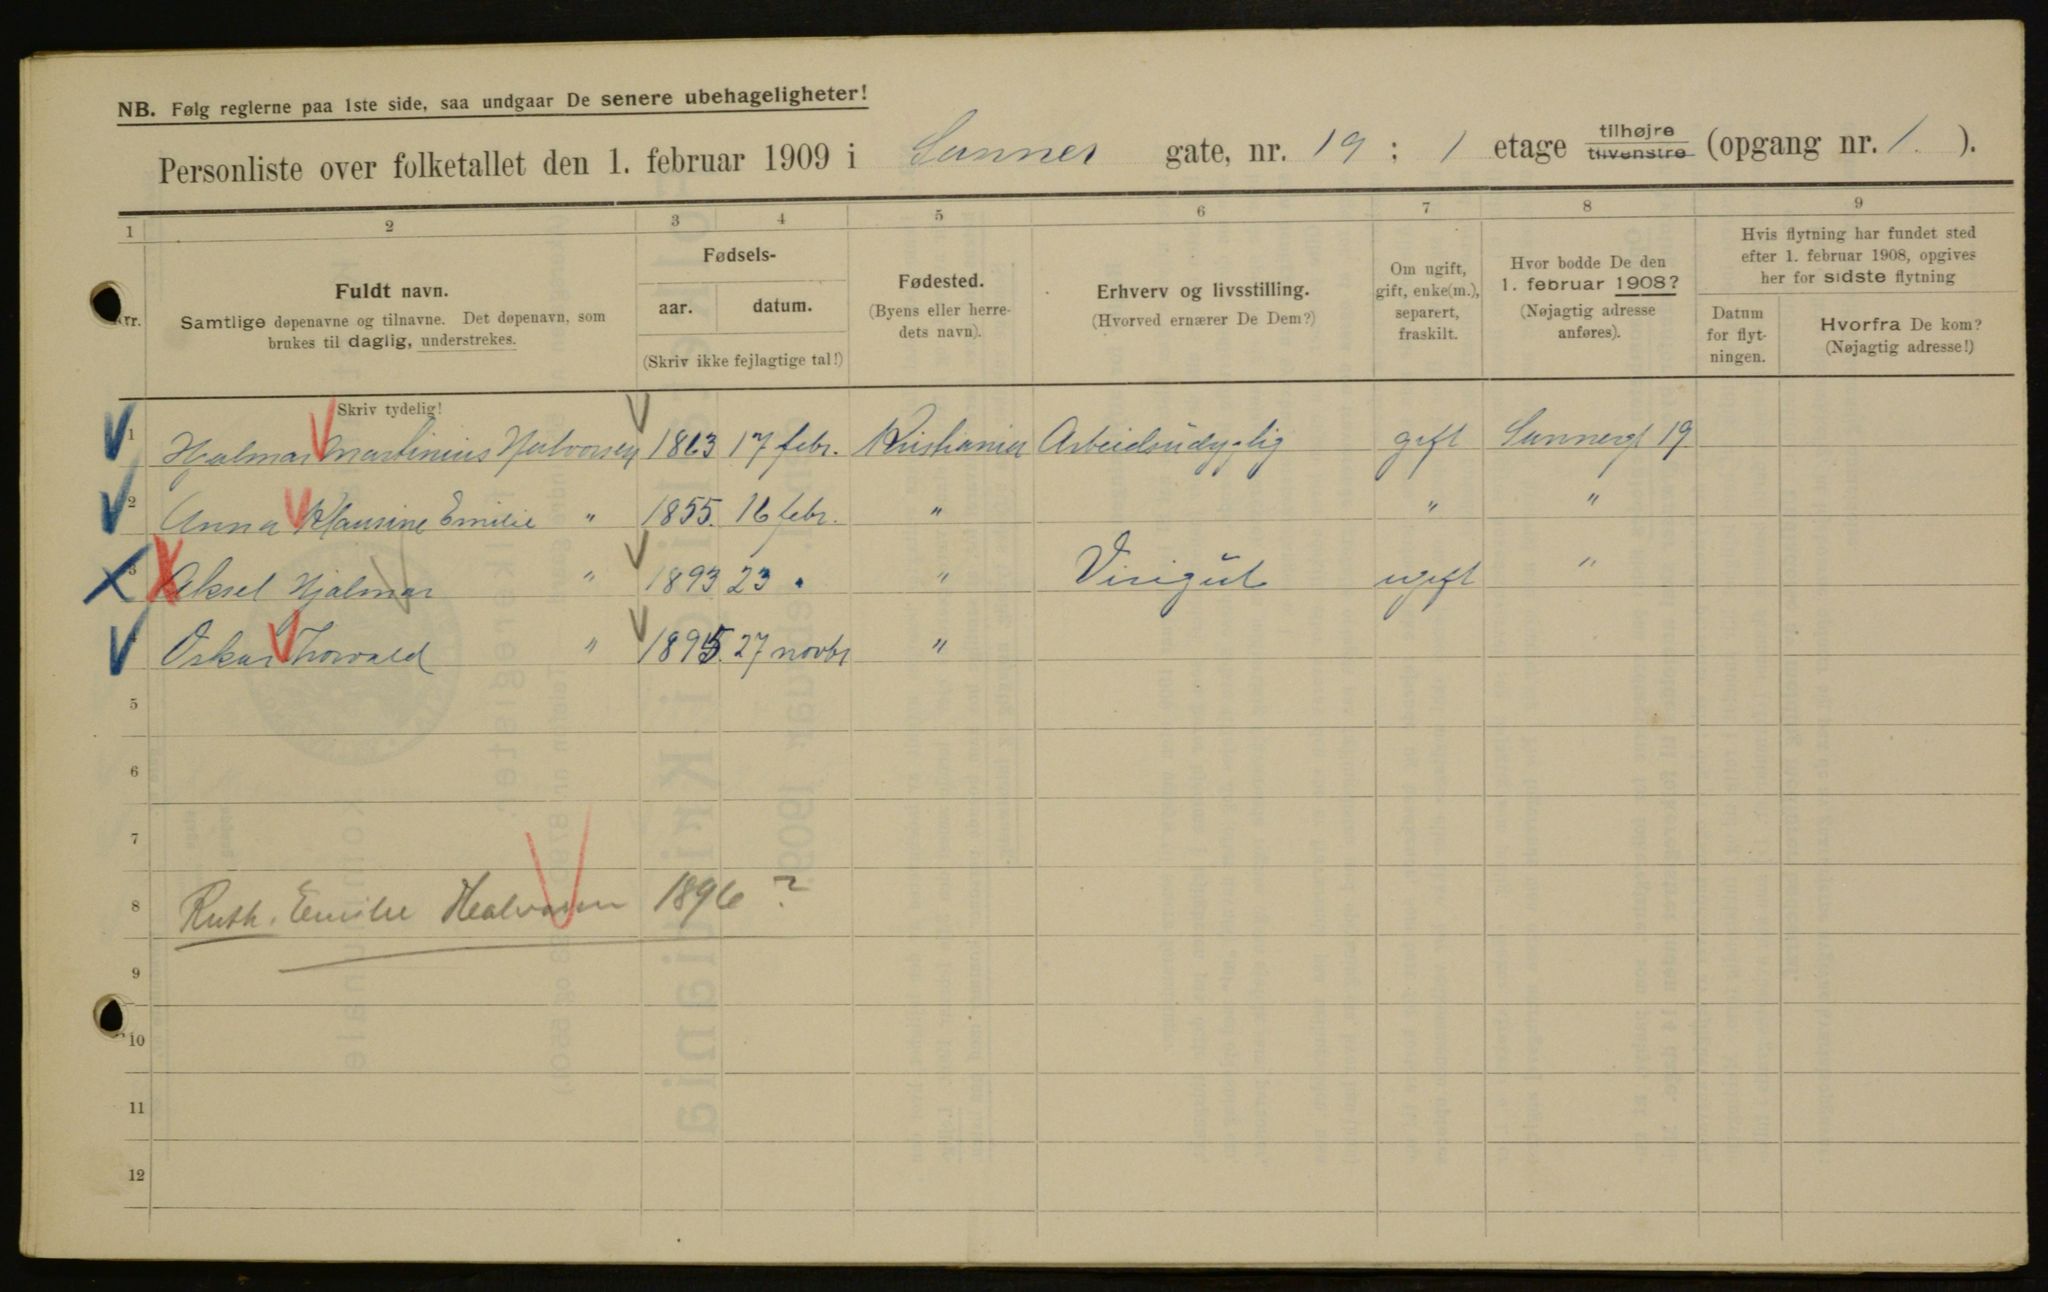 NB. Følg reglerne paa 1ste side, saa undgaar De senere ubehageligheter!
Personliste over folketallet den 1. februar 1909 i Sannes gate, nr. 19 ; 1 etage tilhøjre tilvenstre (opgang nr. 1 ).
1 2 3 4 5 6 7 8 9
Nr.
Fuldt navn.
Samtlige døpenavne og tilnavne. Det døpenavn, som
brukes til daglig, understrekes.
Skriv tydelig!
Fødsels-
aar. datum.
(Skriv ikke fejlagtige tal!)
Fødested.
(Byens eller herre-
dets navn).
Erhverv og livsstilling.
(Hvorved ernærer De Dem?)
Om ugift,
gift, enke(m.),
separert,
fraskilt.
Hvor bodde De den
1. februar 1908?
(Nøjagtig adresse
anføres).
Hvis flytning har fundet sted
efter 1. februar 1908, opgives
her for sidste flytning
Datum
for flyt-
ningen.
Hvorfra De kom?
(Nøjagtig adresse!)
1 Hjalmar Martinius Halvorsen 1863 17 febr. Kristiania Arbeidsudyglig gift Sannergt 19
2 Anna Klausine Emilie " 1855. 16 febr. " " "
3 Aksel Hjalmar " 1893 23 " " Visergut ugift "
4 Oskar Thorvald " 1895. 27 novbr "
5
6
7
8 Ruth. Emilie Halvorsen 1896 ?
9
10
11
12